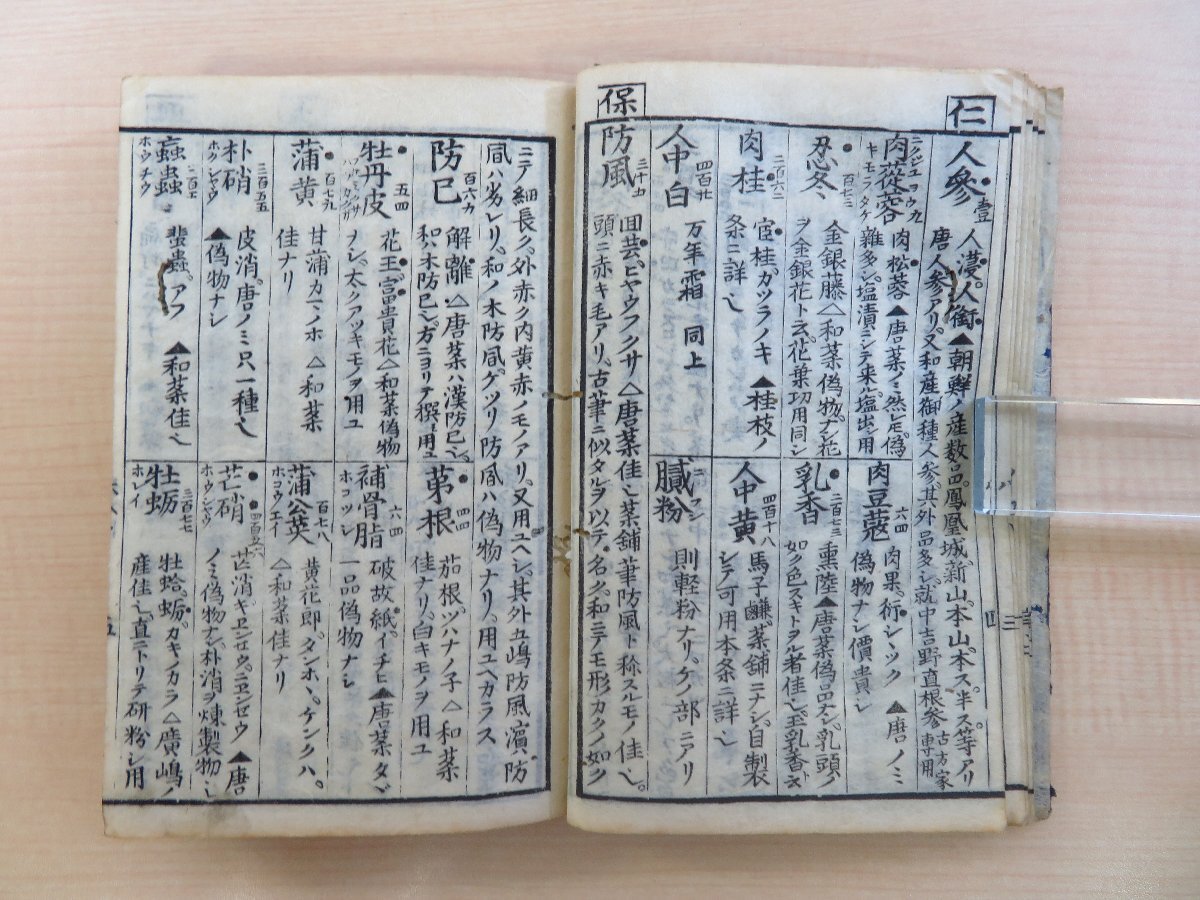 仁
人參 壹 人薓 人銜 ▲朝鮮ノ産数品鳳凰城新山本山本ス半ス等アリ
唐人参アリ又和産御種人参其外品多シ就中吉野直根参 古方家専用
肉蓯蓉 九 肉松蓉 ▲唐菜
キモフタケ 雑多シ塩漬シテ来塩出シ用
肉豆蔲 六四 肉果
偽物ナシ價貴シ ▲唐ノミ
忍冬 百七三 金銀藤 △和菜偽物ナシ花
ヲ金銀花ト云花葉功用同シ
乳香 二百七三 熏陸 ▲唐菜偽品ナシ乳頭ノ
如ク色スキトヲル者佳シ
肉桂 二百六二 宦桂 カツラノキ ▲桂枝ノ
条ニ詳也
人中黄 四百十八 馬子鹻 菜舗ニナシ自製
シテ可用本条ニ詳也
人中白 四百廿 万年霜 同上
膩粉 則軽粉ナリケノ部ニアリ
保
防風 三十九 囬芸 ヒヤウフクサ △唐菜佳也菜舗筆防風ト称スルモノ佳也
頭ニ赤キ毛アリ古筆ニ似タルヲ以テ名ク和ニテモ形カクノ如ク
ニテ細長ク外赤ク内黄赤ノモノアリ又用ユヘシ其外五嶋防風濱防
風ハ劣レリ和ノ木防風ゲヅリ防風ハ偽物ナリ用ユヘカラス
防已 百六九 解離 △唐菜ハ漢防已也
和ハ木防已也方ニヨリテ撰ミ用ユ
茅根 四四 茄根 ツハナノ子 △和菜
佳ナリ白キモノヲ用ユ
牡丹皮 五四 花王 富貴花 △和菜偽物
ナシ太クアツキモノヲ用ユ
補骨脂 六四 破故紙 ▲唐菜タヾ
ホコツシ 一品偽物ナシ
蒲黄 百七九 甘蒲 カマノホ △和菜
佳ナリ
蒲公英 百七八 黄花郎 タンホヽ ケンクハ
ホコウエイ △和菜佳ナリ
朴硝 三百五五 皮消 唐ノミ只一種也
ホクシヤウ ▲偽物ナシ
芒硝 四百五六 芒消 ▲唐
ホウシヤウ ノミ偽物ナシ朴消ヲ煉製物也
蝱蟲 蜚蝱 アフ ▲和菜佳也
ホウチウ
牡蛎 三百七七 牡蛤 蛎 カキノカラ △廣嶋ノ
ホレイ 産佳也直ニトリテ研粉シ用